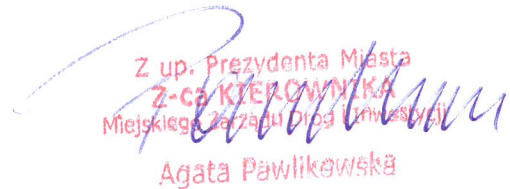 Z up. Prezydenta Miasta
Z-ca KIEROWNIKA
Miejskiego Zarządu Dróg i Inwestycji
Agata Pawlikowska